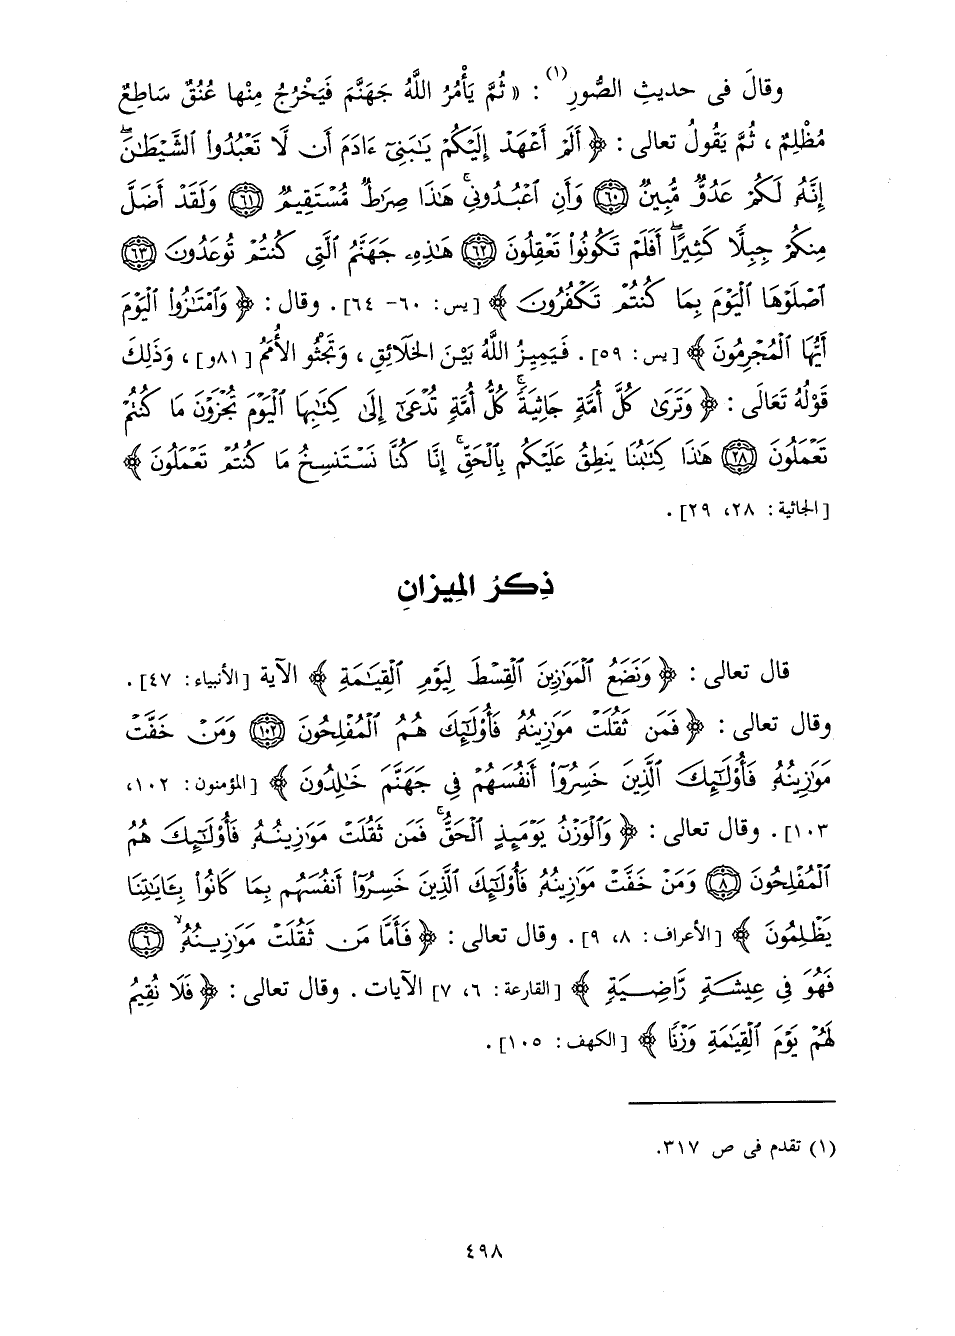 وقالَ فى حديثِ الصُّورِ(١) : « ثُمَّ يَأْمُرُ اللَّهُ جَهَنَّمَ فَيَخْرُجُ مِنْها عُنُقٌ سَاطِعٌ
مُظْلِمٌ ، ثُمَّ يَقُولُ تعالى : ﴿ أَلَمْ أَعْهَدْ إِلَيْكُمْ يَٰبَنِىٓ ءَادَمَ أَن لَّا تَعْبُدُوا۟ ٱلشَّيْطَٰنَ ۖ
إِنَّهُۥ لَكُمْ عَدُوٌّ مُّبِينٌ ﴿٦٠﴾ وَأَنِ ٱعْبُدُونِى ۚ هَٰذَا صِرَٰطٌ مُّسْتَقِيمٌ ﴿٦١﴾ وَلَقَدْ أَضَلَّ
مِنكُمْ جِبِلًّا كَثِيرًا ۖ أَفَلَمْ تَكُونُوا۟ تَعْقِلُونَ ﴿٦٢﴾ هَٰذِهِۦ جَهَنَّمُ ٱلَّتِى كُنتُمْ تُوعَدُونَ ﴿٦٣﴾
ٱصْلَوْهَا ٱلْيَوْمَ بِمَا كُنتُمْ تَكْفُرُونَ ﴾ [يس: ٦٠- ٦٤] . وقال : ﴿ وَٱمْتَٰزُوا۟ ٱلْيَوْمَ
أَيُّهَا ٱلْمُجْرِمُونَ ﴾ [يس: ٥٩] . فَيَمِيزُ اللَّهُ بَيْنَ الخَلَائِقِ ، وَتَجْثُو الأُمَمُ [٨١و] ، وَذَلِكَ
قَوْلُهُ تَعَالَى : ﴿ وَتَرَىٰ كُلَّ أُمَّةٍ جَاثِيَةً ۚ كُلُّ أُمَّةٍ تُدْعَىٰٓ إِلَىٰ كِتَٰبِهَا ٱلْيَوْمَ تُجْزَوْنَ مَا كُنتُمْ
تَعْمَلُونَ ﴿٢٨﴾ هَٰذَا كِتَٰبُنَا يَنطِقُ عَلَيْكُم بِٱلْحَقِّ ۚ إِنَّا كُنَّا نَسْتَنسِخُ مَا كُنتُمْ تَعْمَلُونَ ﴾
[الجاثية : ٢٨، ٢٩] .
ذِكرُ الميزانِ
قال تعالى : ﴿ وَنَضَعُ ٱلْمَوَٰزِينَ ٱلْقِسْطَ لِيَوْمِ ٱلْقِيَٰمَةِ ﴾ الآية [الأنبياء: ٤٧] .
وقال تعالى : ﴿ فَمَن ثَقُلَتْ مَوَٰزِينُهُۥ فَأُو۟لَٰٓئِكَ هُمُ ٱلْمُفْلِحُونَ ﴿١٠٢﴾ وَمَنْ خَفَّتْ
مَوَٰزِينُهُۥ فَأُو۟لَٰٓئِكَ ٱلَّذِينَ خَسِرُوٓا۟ أَنفُسَهُمْ فِى جَهَنَّمَ خَٰلِدُونَ ﴾ [المؤمنون: ١٠٢،
١٠٣] . وقال تعالى : ﴿ وَٱلْوَزْنُ يَوْمَئِذٍ ٱلْحَقُّ ۚ فَمَن ثَقُلَتْ مَوَٰزِينُهُۥ فَأُو۟لَٰٓئِكَ هُمُ
ٱلْمُفْلِحُونَ ﴿٨﴾ وَمَنْ خَفَّتْ مَوَٰزِينُهُۥ فَأُو۟لَٰٓئِكَ ٱلَّذِينَ خَسِرُوٓا۟ أَنفُسَهُم بِمَا كَانُوا۟ بِـَٔايَٰتِنَا
يَظْلِمُونَ ﴾ [الأعراف: ٨، ٩] . وقال تعالى : ﴿ فَأَمَّا مَن ثَقُلَتْ مَوَٰزِينُهُۥ ۙ ﴿٦﴾
فَهُوَ فِى عِيشَةٍ رَّاضِيَةٍ ﴾ [القارعة: ٦، ٧] الآيات . وقال تعالى : ﴿ فَلَا نُقِيمُ
لَهُمْ يَوْمَ ٱلْقِيَٰمَةِ وَزْنًا ﴾ [الكهف: ١٠٥] .
(١) تقدم فى ص ٣١٧.
٤٩٨